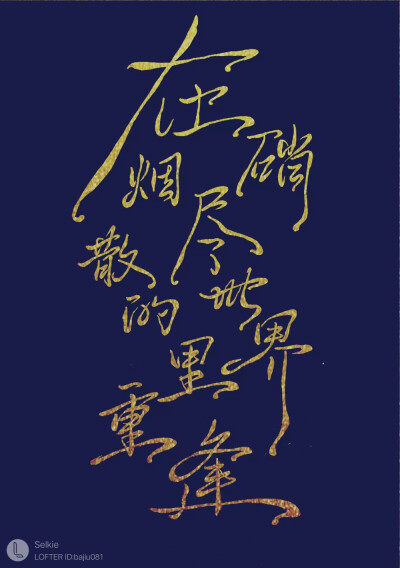 在
硝烟
散尽
的世界
里
重逢
Selkie
LOFTER ID:bajiu081